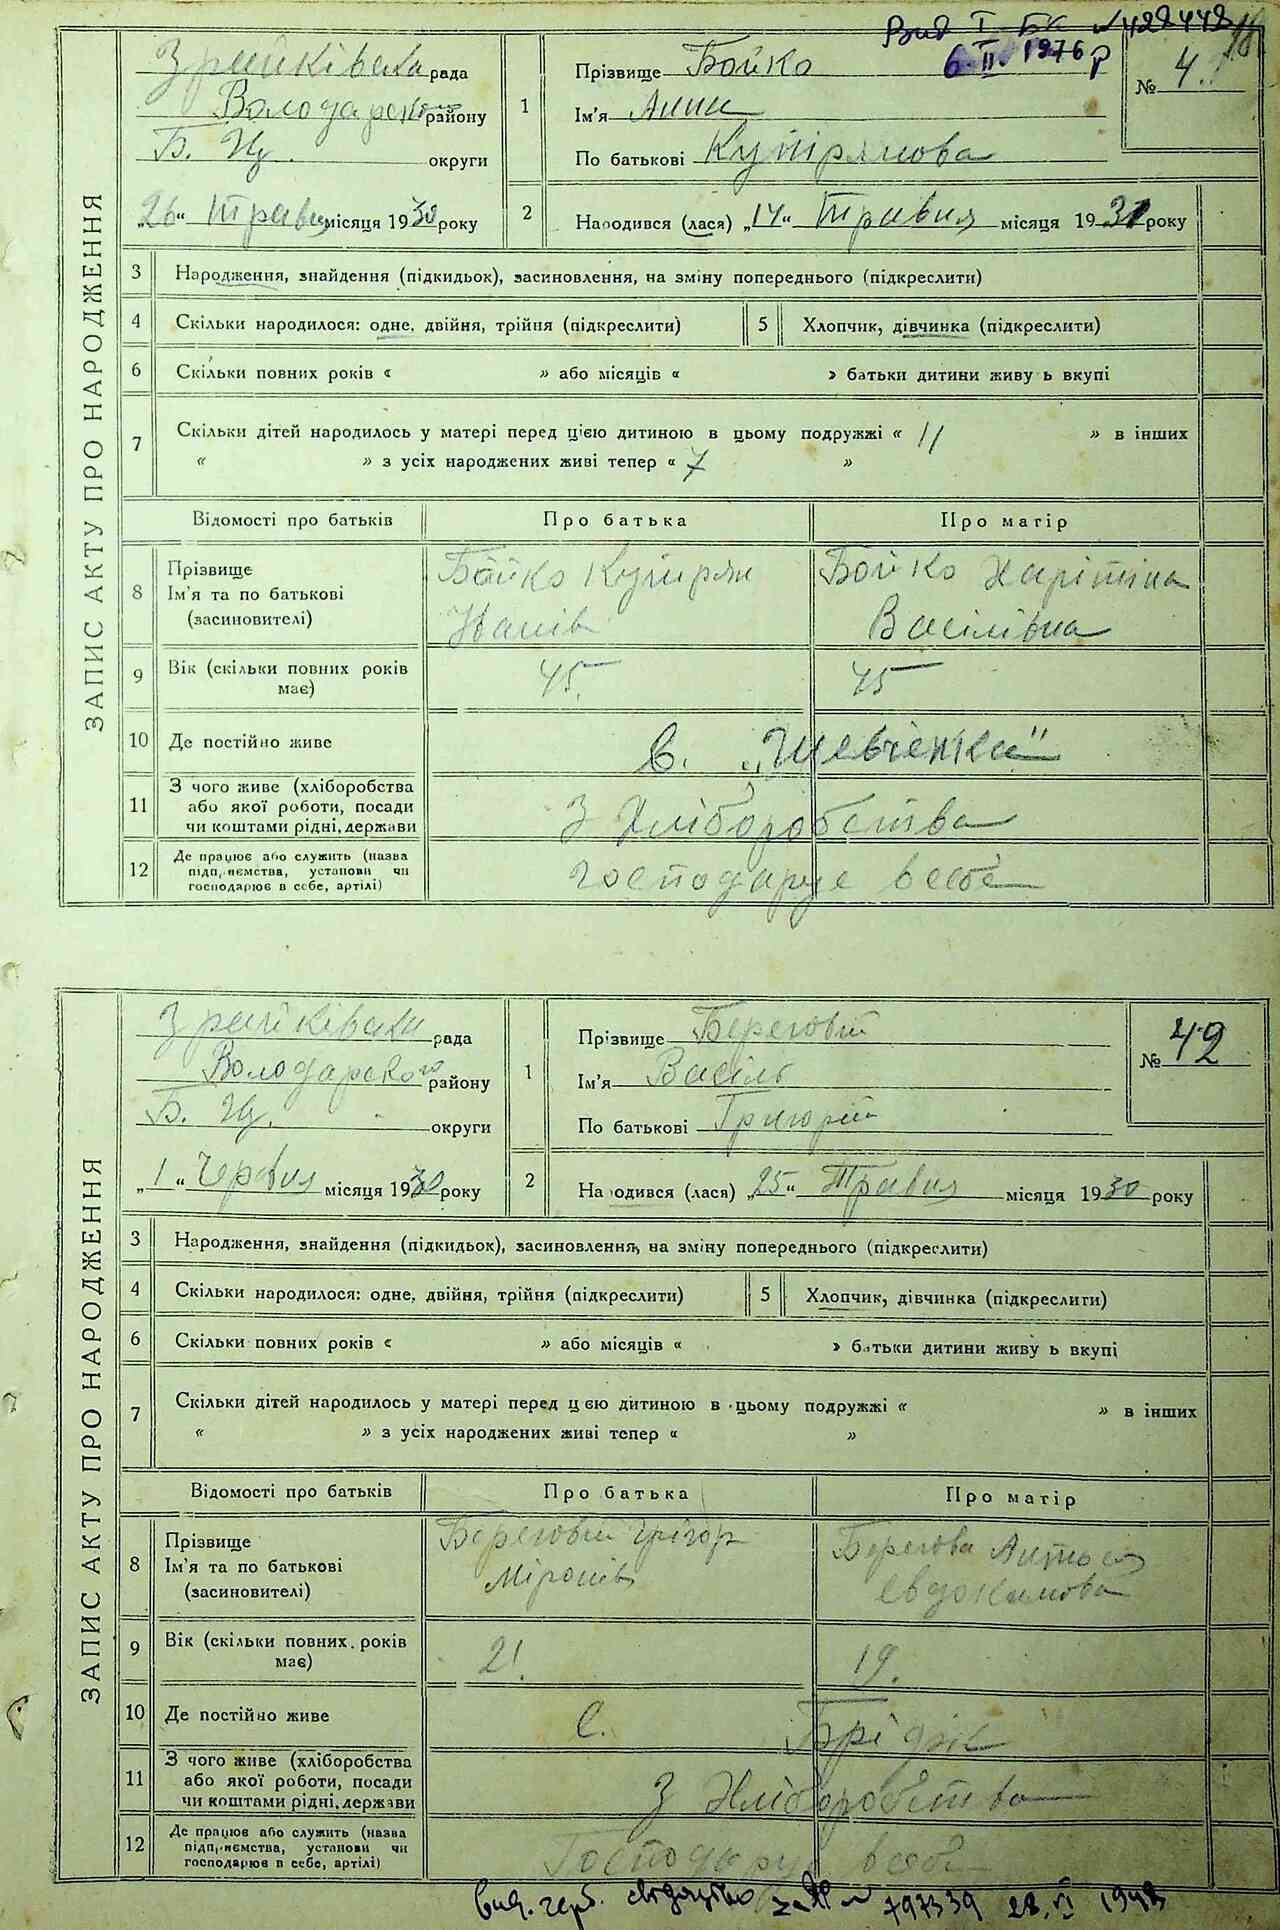 Вид I БК №422442
6. II. 1976 р
ЗАПИС АКТУ ПРО НАРОДЖЕННЯ
Зрайківська рада
Володарського району
Б. Ц. округи
„26“ Травня місяця 1930 року
1
Прізвище Бойко
Ім'я Анна
По батькові Купріянова
№ 41
2
Народився (лася) „14“ Травня місяця 1930 року
3 Народження, знайдення (підкидьок), засиновлення, на зміну попереднього (підкреслити)
4 Скільки народилося: одне, двійня, трійня (підкреслити) 5 Хлопчик, дівчинка (підкреслити)
6 Скільки повних років « » або місяців « » батьки дитини живуть вкупі
7 Скільки дітей народилось у матері перед цією дитиною в цьому подружжі « 11 » в інших
« » з усіх народжених живі тепер « 7 »
Відомості про батьків Про батька Про матір
8 Прізвище
Ім'я та по батькові
(засиновителі)
Бойко Купріян
Іванів
Бойко Харітіна
Васілівна
9 Вік (скільки повних років
має)
45 45
10 Де постійно живе с. „Шевченка“
11 З чого живе (хліборобства
або якої роботи, посади
чи коштами рідні, держави
З Хліборобства
12 Де працює або служить (назва
підприємства, установи чи
господарює в себе, артілі)
господарує всебе
ЗАПИС АКТУ ПРО НАРОДЖЕННЯ
Зрайківська рада
Володарського району
Б. Ц. округи
„1“ Червня місяця 1930 року
1
Прізвище Береговий
Ім'я Васіль
По батькові Григорій
№ 42
2
Народився (лася) „25“ Травня місяця 1930 року
3 Народження, знайдення (підкидьок), засиновлення, на зміну попереднього (підкреслити)
4 Скільки народилося: одне, двійня, трійня (підкреслити) 5 Хлопчик, дівчинка (підкреслити)
6 Скільки повних років « » або місяців « » батьки дитини живуть вкупі
7 Скільки дітей народилось у матері перед цією дитиною в цьому подружжі « » в інших
« » з усіх народжених живі тепер « »
Відомості про батьків Про батька Про матір
8 Прізвище
Ім'я та по батькові
(засиновителі)
Береговий Грігор
Міронів
Берегова
Євдокимова
9 Вік (скільки повних років
має)
21. 19.
10 Де постійно живе С.
11 З чого живе (хліборобства
або якої роботи, посади
чи коштами рідні, держави
З Хліборобства
12 Де працює або служить (назва
підприємства, установи чи
господарює в себе, артілі)
Господарує всебе
вид. герб. свідоцтво за № 797339 28. VI 1948